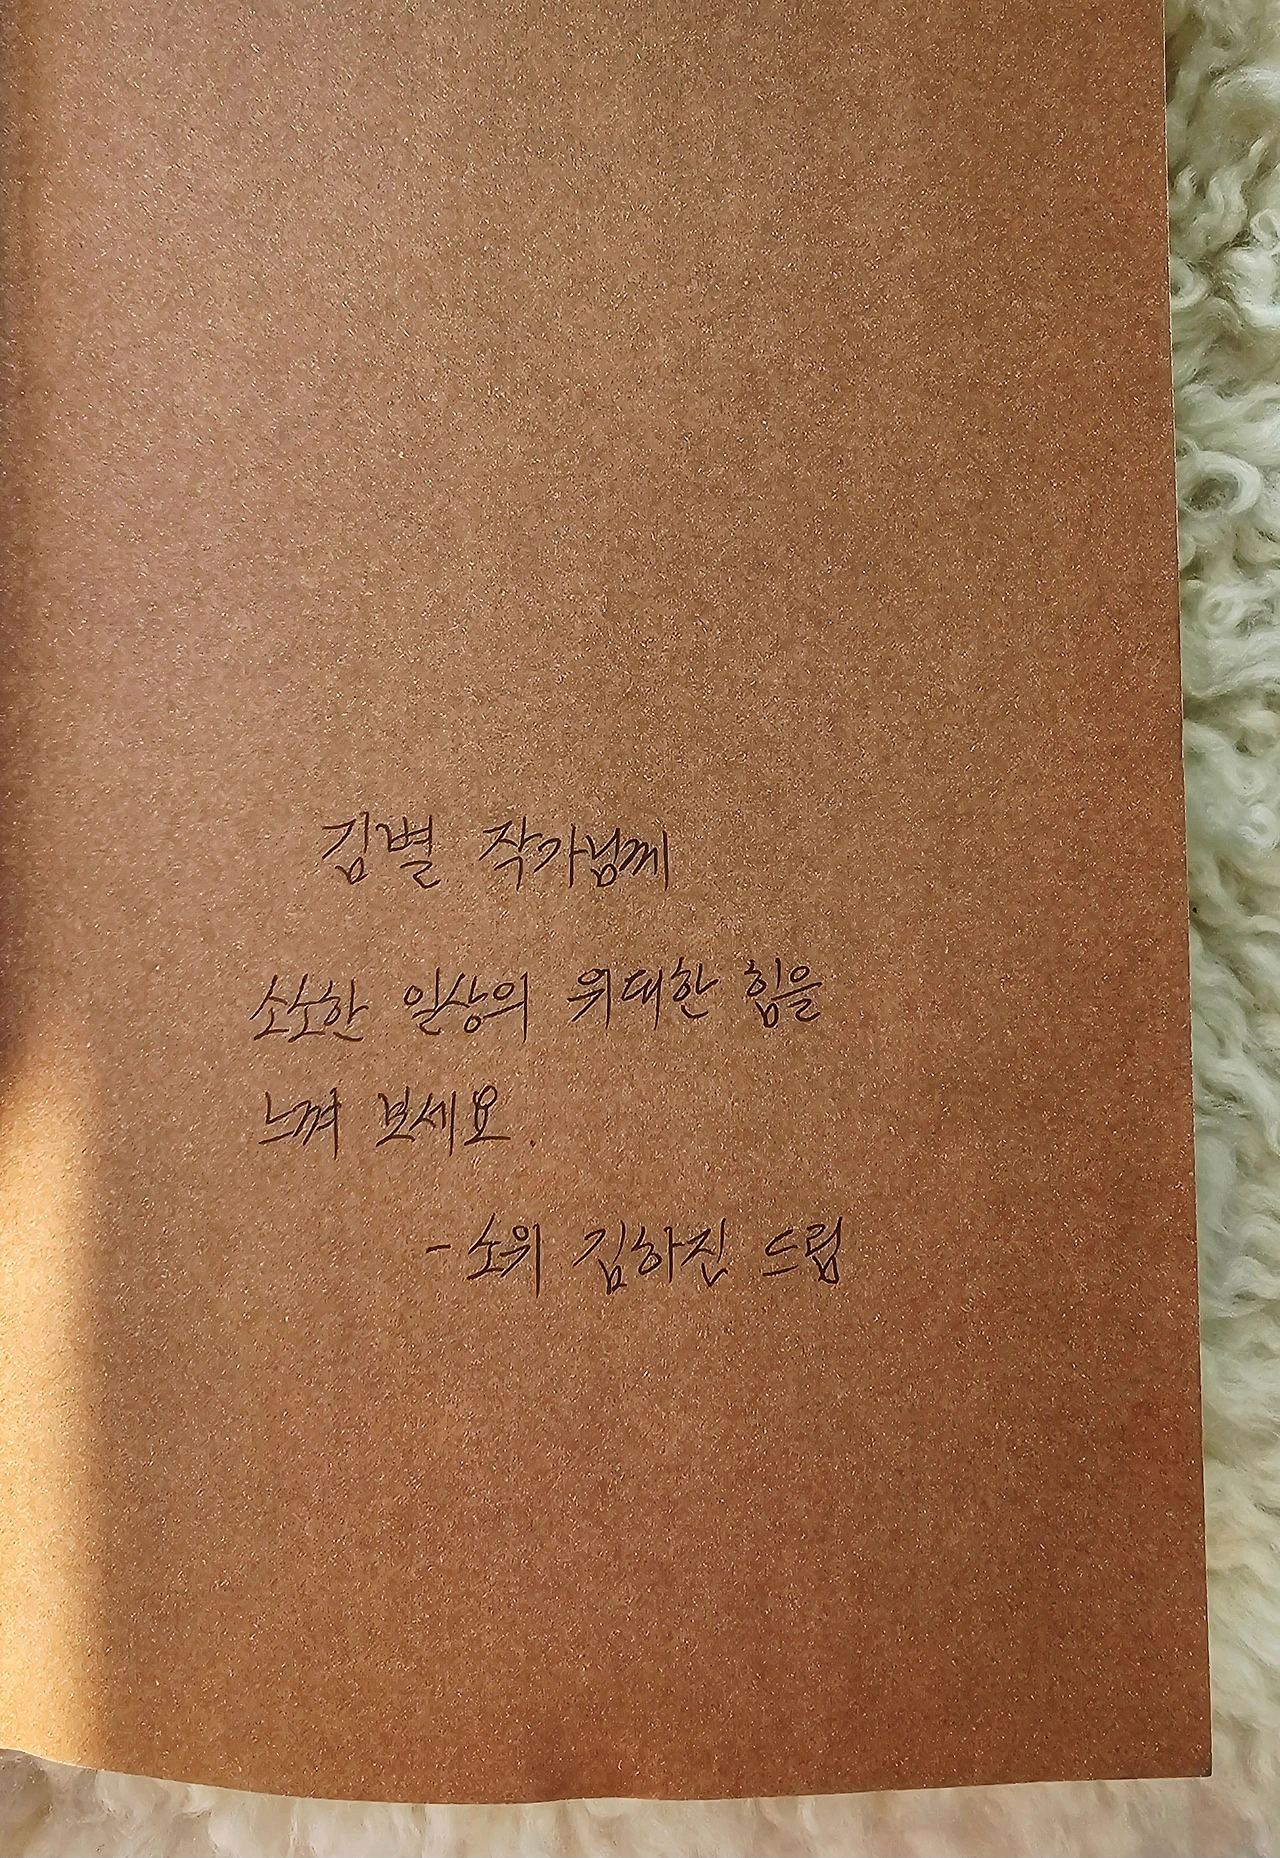 김별 작가님께
소소한 일상의 위대한 힘을
느껴 보세요.
- 소위 김하진 드림